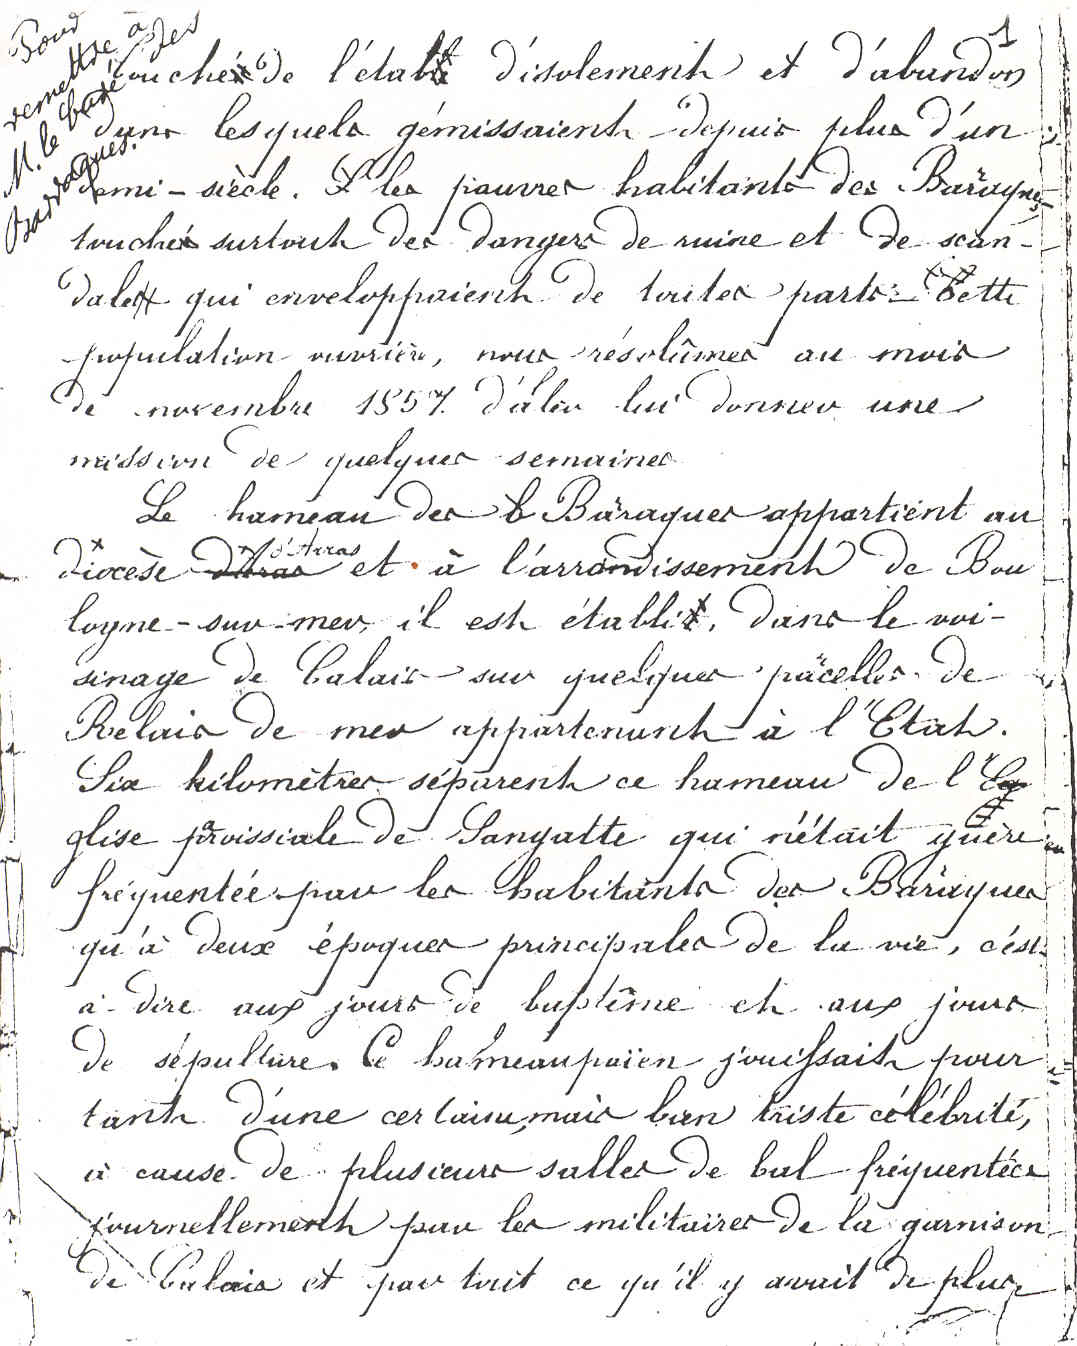 1
Pour
remettre à
M. le Curé des
Barraques.
Touchés de l'état d'isolement et d'abandon
dans lesquels gémissaient depuis plus d'un
demi-siècle. les pauvres habitants des Baraques,
touchés surtout des dangers de ruine et de scan-
dales qui enveloppaient de toutes parts cette
population ouvrière, nous résolûmes au mois
de novembre 1857. d'aler lui donner une
mission de quelques semaines
Le hameau des Baraques appartient au
diocèse d'Arras et à l'arrondissement de Bou
logne-sur-mer, il est établi, dans le voi-
sinage de Calais sur quelques pacelles de
Relais de mer appartenant à l'Etat.
Six kilomètres séparent ce hameau de l'Eg
glise paroissiale de Sangatte qui n'était guère
fréquentée par les habitants des Baraques
qu'à deux époques principales de la vie, c'est-
à-dire aux jours de baptême et aux jours
de sépulture. Ce hameau païen jouissait pour
tant d'une certaine, mais bien triste célébrité,
à cause de plusieurs salles de bal fréquentées
journellement par les militaires de la garnison
de Calais et par tout ce qu'il y avait de plus